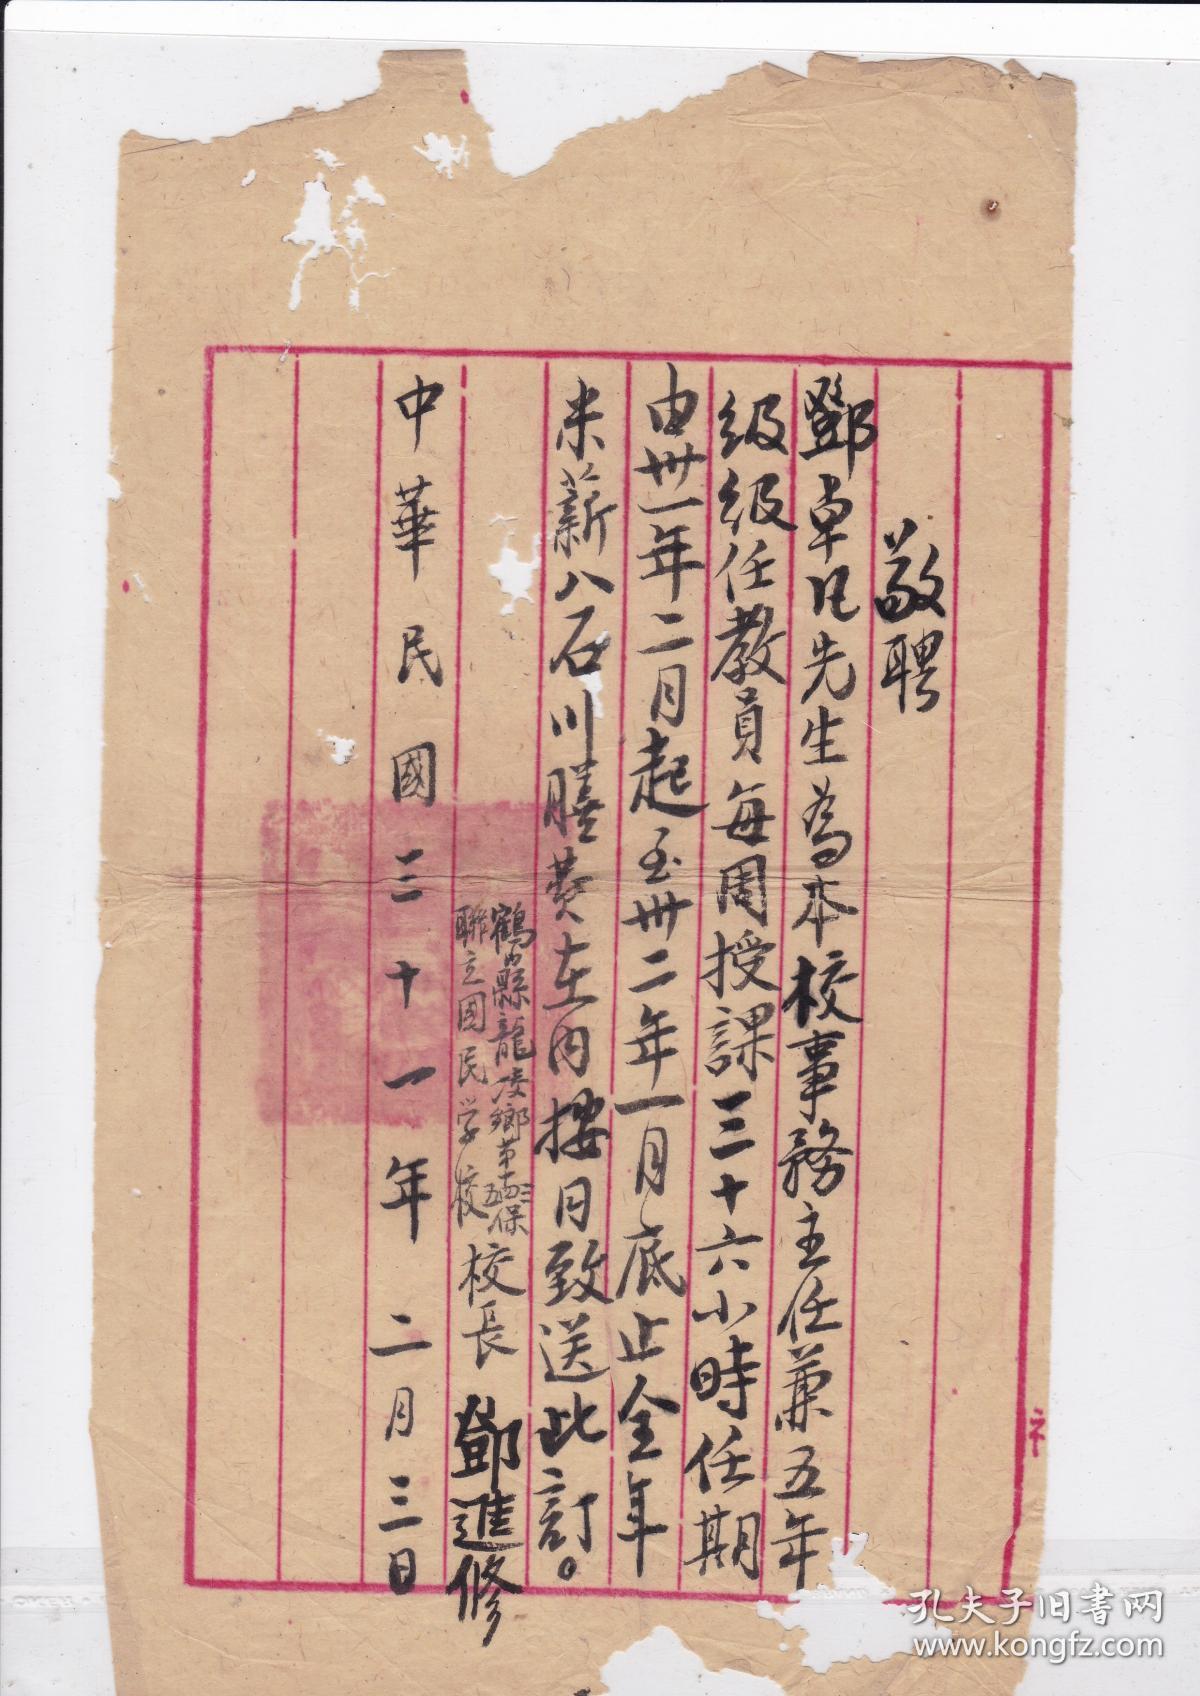 敬聘
鄧卓凡先生為本校事務主任兼五年
級級任教員每周授課三十六小時任期
由卅一年二月起至卅二年一月底止全年
米薪八石川膳費在內按月致送此訂。
鶴山縣龍凌鄉第十三十五保
聯立國民学校
校長 鄧進修
中華民國三十一年二月三日
孔夫子旧书网
www.kongfz.com